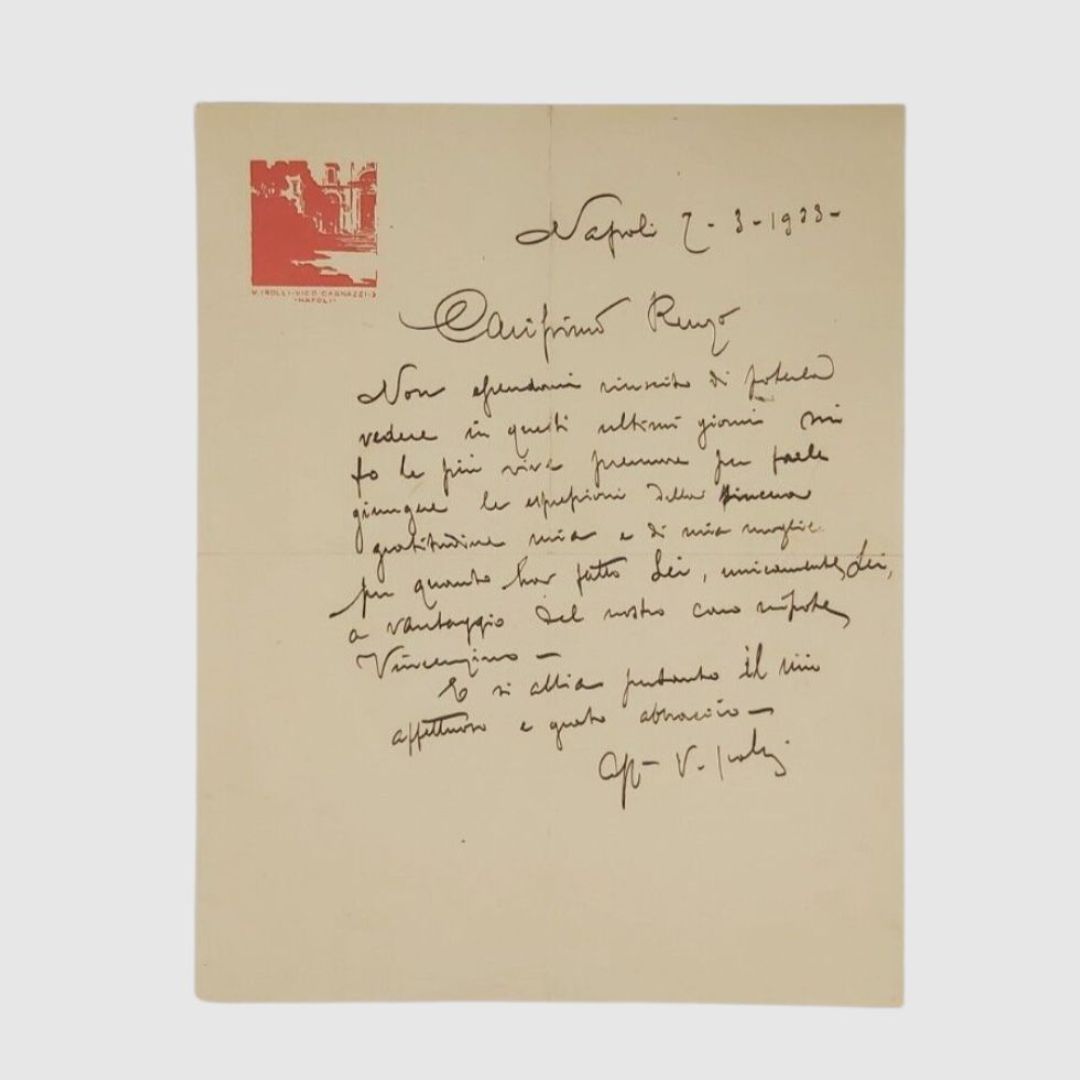 V. IROLLI - VICO CAGNAZZI - 3
- NAPOLI -
Napoli 7 - 3 - 1933 -
Carissimo Renzo
Non essendomi riuscito di poterla
vedere in questi ultimi giorni mi
fo le più vive premure per farle
giungere le espressioni della sincera
gratitudine mia e di mia moglie
per quanto ha fatto Lei, unicamente Lei,
a vantaggio del nostro caro nipote
Vincenzino -
E si abbia pertanto il mio
affettuoso e grato abbraccio -
Aff- V. Irolli